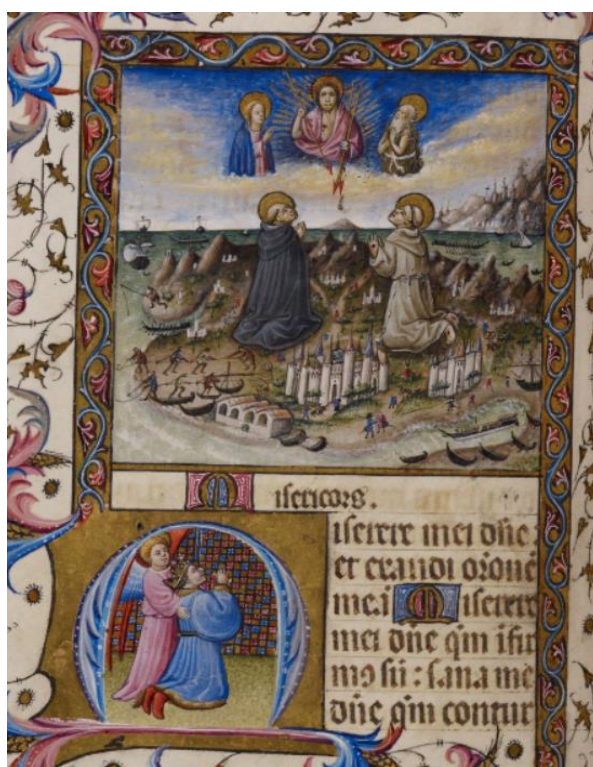 Misericors.
Miserere mei dn̄e
et exaudi orōnē
meā Miserere
mei dn̄e qm̄ ifir
mꝯ sū : sana me
dn̄e qm̄ contur